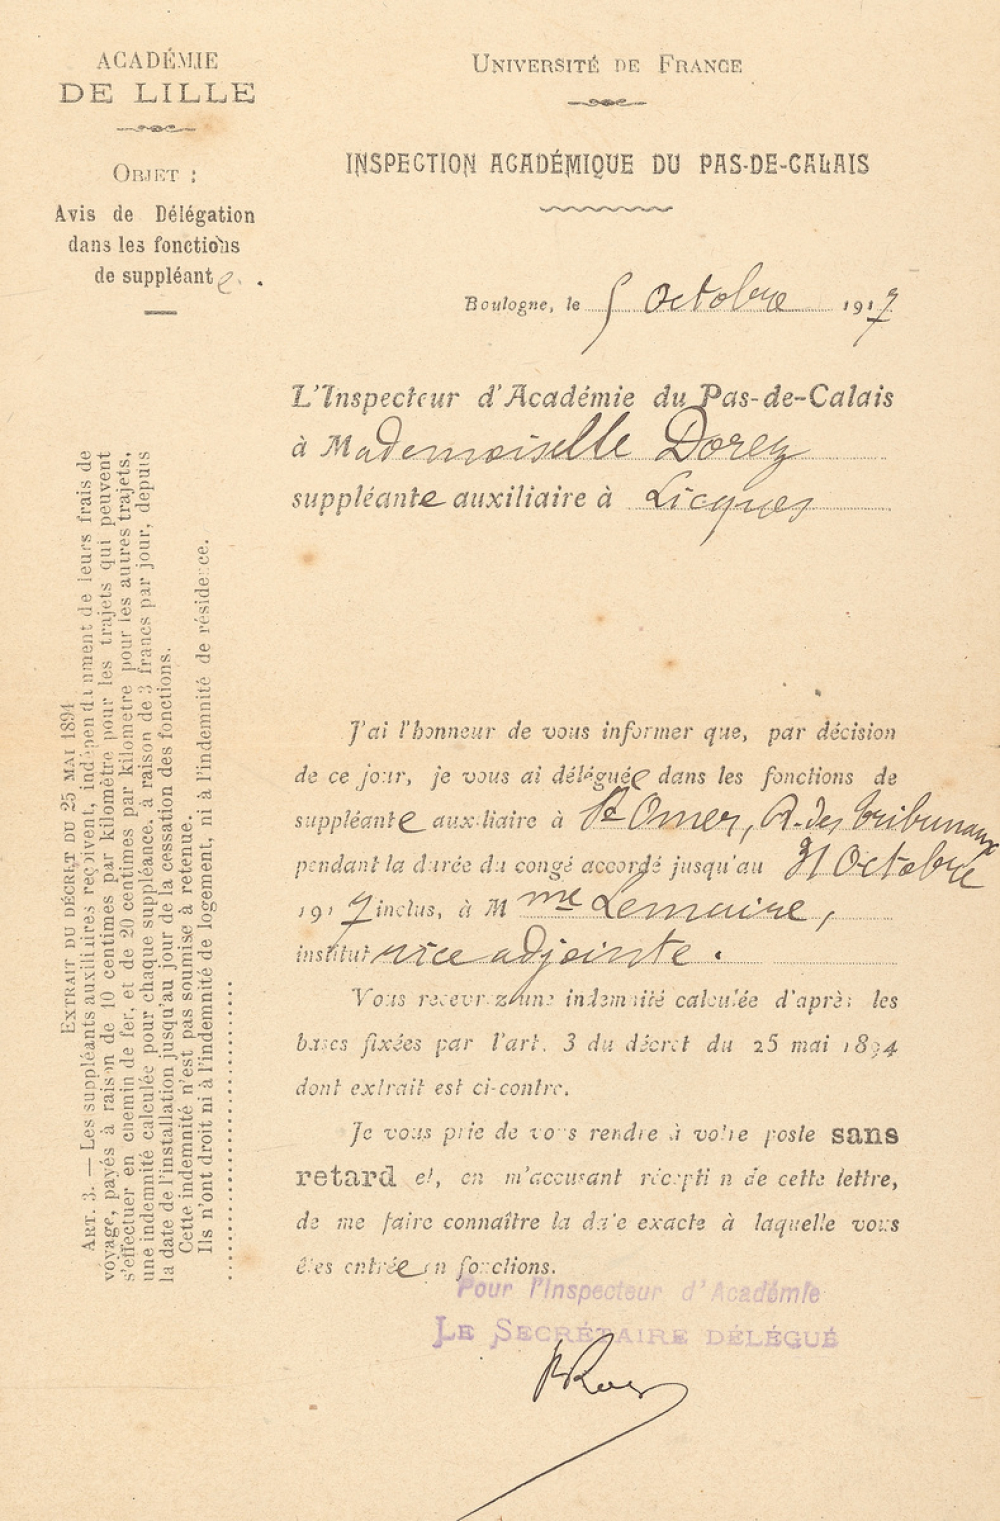 ACADÉMIE
DE LILLE
OBJET :
Avis de Délégation
dans les fonctions
de suppléante.
UNIVERSITÉ DE FRANCE
INSPECTION ACADÉMIQUE DU PAS-DE-CALAIS
Boulogne, le 5 Octobre 1917
L'Inspecteur d'Académie du Pas-de-Calais
à Mademoiselle Dorez
suppléante auxiliaire à Licques
J'ai l'honneur de vous informer que, par décision
de ce jour, je vous ai déléguée dans les fonctions de
suppléante auxiliaire à St Omer, R. des Tribunaux
pendant la durée du congé accordé jusqu'au 31 Octobre
1917 inclus, à Mme Lemaire,
institutrice adjointe.
Vous recevrez une indemnité calculée d'après les
bases fixées par l'art. 3 du décret du 25 mai 1894
dont extrait est ci-contre.
Je vous prie de vous rendre à votre poste sans
retard et, en m'accusant réception de cette lettre,
de me faire connaître la date exacte à laquelle vous
êtes entrée en fonctions.
Pour l'Inspecteur d'Académie
LE SECRÉTAIRE DÉLÉGUÉ
EXTRAIT DU DÉCRET DU 25 MAI 1894
ART. 3. — Les suppléants auxiliaires reçoivent, indépendamment de leurs frais de
voyage, payés à raison de 10 centimes par kilomètre pour les trajets qui peuvent
s'effectuer en chemin de fer, et de 20 centimes par kilomètre pour les autres trajets,
une indemnité calculée pour chaque suppléance, à raison de 3 francs par jour, depuis
la date de l'installation jusqu'au jour de la cessation des fonctions.
Cette indemnité n'est pas soumise à retenue.
Ils n'ont droit ni à l'indemnité de logement, ni à l'indemnité de résidence.